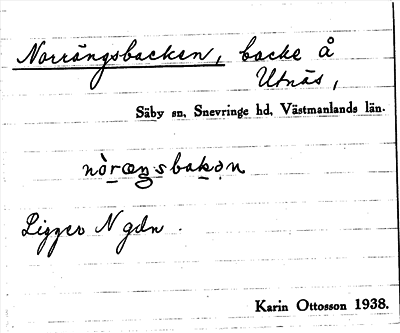 Norrängsbacken, backe å
Utnäs,
Säby sn, Snevringe hd, Västmanlands län.
nòræŋsbakən
Ligger N gdn.
Karin Ottosson 1938.